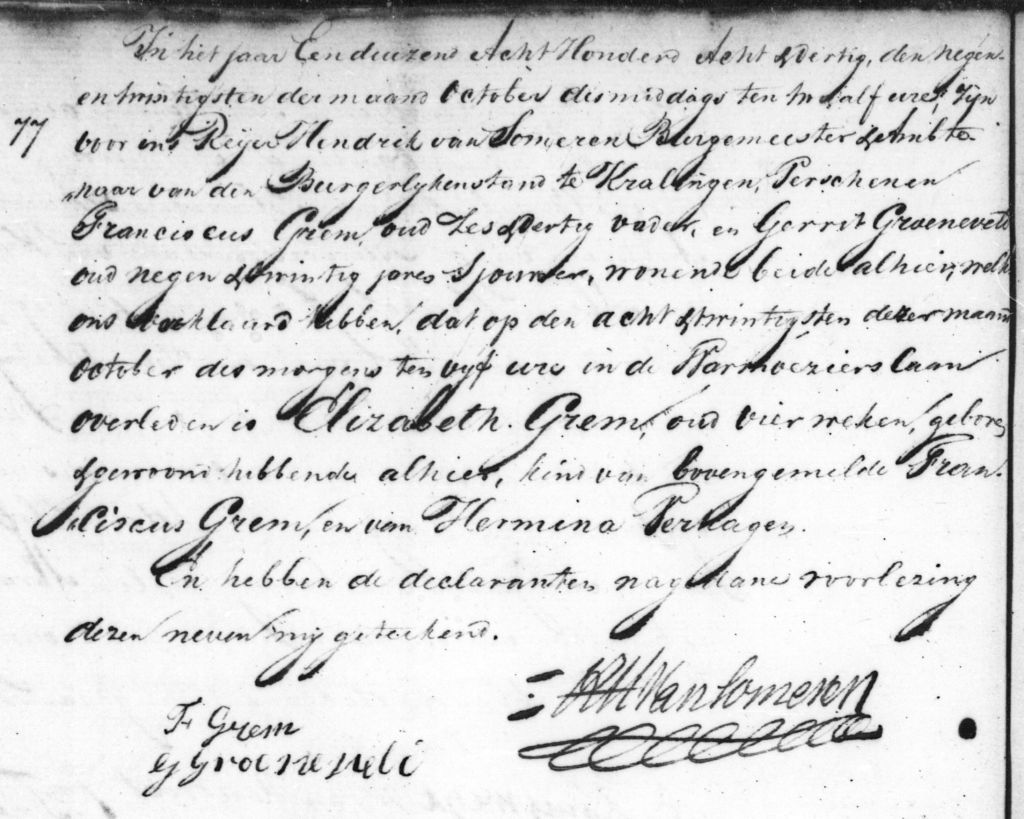 In het jaar Eenduizend Acht Honderd Acht & Dertig, den negen-
entwintigsten der maand October des middags ten half ure, Zijn
77
voor ons Reijer Hendrik van Someren Burgemeester & Ambte
naar van den Burgerlyken stand te Kralingen, Verschenen
Franciscus Grem, oud Zes & Dertig vader, en Gerrit Groeneveld
oud negen & twintig jaren Sjouwer, wonende beide alhier, welke
ons verklaard hebben, dat op den acht & twintigsten dezer maand
October des morgens ten vyf ure in de Warmoeziers laan
overleden is Elizabeth Grem, oud vier weken, geboren
& gewoond hebbende alhier, kind van bovengemelde Fran-
ciscus Grem, en van Hermina Verhagen.
En hebben de declaranten na gedane voorlezing
dezen neven mij geteekend.
F Grem
G Groeneveld
RH Van Someren